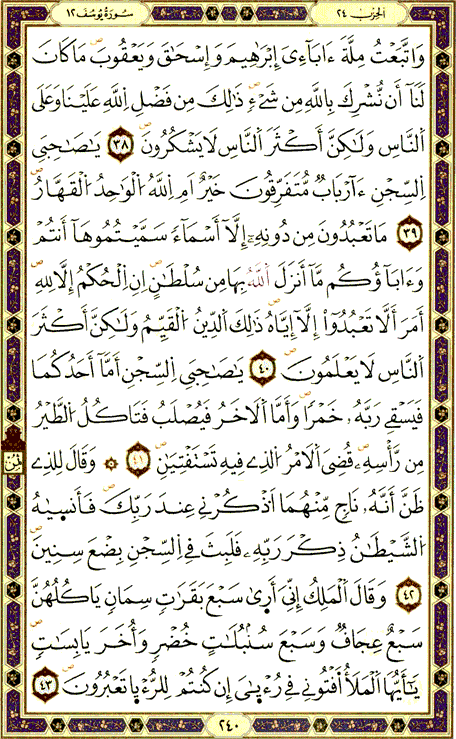 سورة يوسف ١٢
الحزب ٢٤
وَاتَّبَعْتُ مِلَّةَ ءَابَآءِىَ إِبْرَٰهِيمَ وَإِسْحَٰقَ وَيَعْقُوبَ مَا كَانَ
لَنَآ أَن نُّشْرِكَ بِاللَّهِ مِن شَىْءٍ ذَٰلِكَ مِن فَضْلِ اِللَّهِ عَلَيْنَا وَعَلَى
اَلنَّاسِ وَلَٰكِنَّ أَكْثَرَ اَلنَّاسِ لَا يَشْكُرُونَ ٣٨ يَٰصَٰحِبَىِ
اِلسِّجْنِ ءَآرْبَابٌ مُّتَفَرِّقُونَ خَيْرٌ اَمِ اِللَّهُ اُلْوَٰحِدُ اُلْقَهَّارُ
٣٩ مَا تَعْبُدُونَ مِن دُونِهِۦٓ إِلَّآ أَسْمَآءً سَمَّيْتُمُوهَآ أَنتُمْ
وَءَابَآؤُكُم مَّآ أَنزَلَ اَللَّهُ بِهَا مِن سُلْطَٰنٍ اِنِ اِلْحُكْمُ إِلَّا لِلهِ
أَمَرَ أَلَّا تَعْبُدُوٓاْ إِلَّآ إِيَّاهُ ذَٰلِكَ اَلدِّينُ اُلْقَيِّمُ وَلَٰكِنَّ أَكْثَرَ
اَلنَّاسِ لَا يَعْلَمُونَ ٤٠ يَٰصَٰحِبَىِ اِلسِّجْنِ أَمَّآ أَحَدُكُمَا
فَيَسْقِى رَبَّهُۥ خَمْرًا وَأَمَّا اَلَاخَرُ فَيُصْلَبُ فَتَاكُلُ اُلطَّيْرُ
مِن رَّأْسِهِۦ قُضِىَ اَلَامْرُ اُلذِى فِيهِ تَسْتَفْتِيَٰنِ ٤١ ۞ وَقَالَ لِلذِى
ظَنَّ أَنَّهُۥ نَاجٍ مِّنْهُمَا اَذْكُرْنِى عِندَ رَبِّكَ فَأَنسِىٰهُ
اُلشَّيْطَٰنُ ذِكْرَ رَبِّهِۦ فَلَبِثَ فِى اِلسِّجْنِ بِضْعَ سِنِينَ
٤٢ وَقَالَ اَلْمَلِكُ إِنِّىَ أَرِىٰ سَبْعَ بَقَرَٰتٍ سِمَانٍ يَاكُلُهُنَّ
سَبْعٌ عِجَافٌ وَسَبْعَ سُنۢبُلَٰتٍ خُضْرٍ وَأُخَرَ يَابِسَٰتٍ
يَٰٓأَيُّهَا اَلْمَلَأُ اَفْتُونِى فِى رُءْيِٰىَ إِن كُنتُمْ لِلرُّءْيِا تَعْبُرُونَ ٤٣
ثمن
٢٤٠